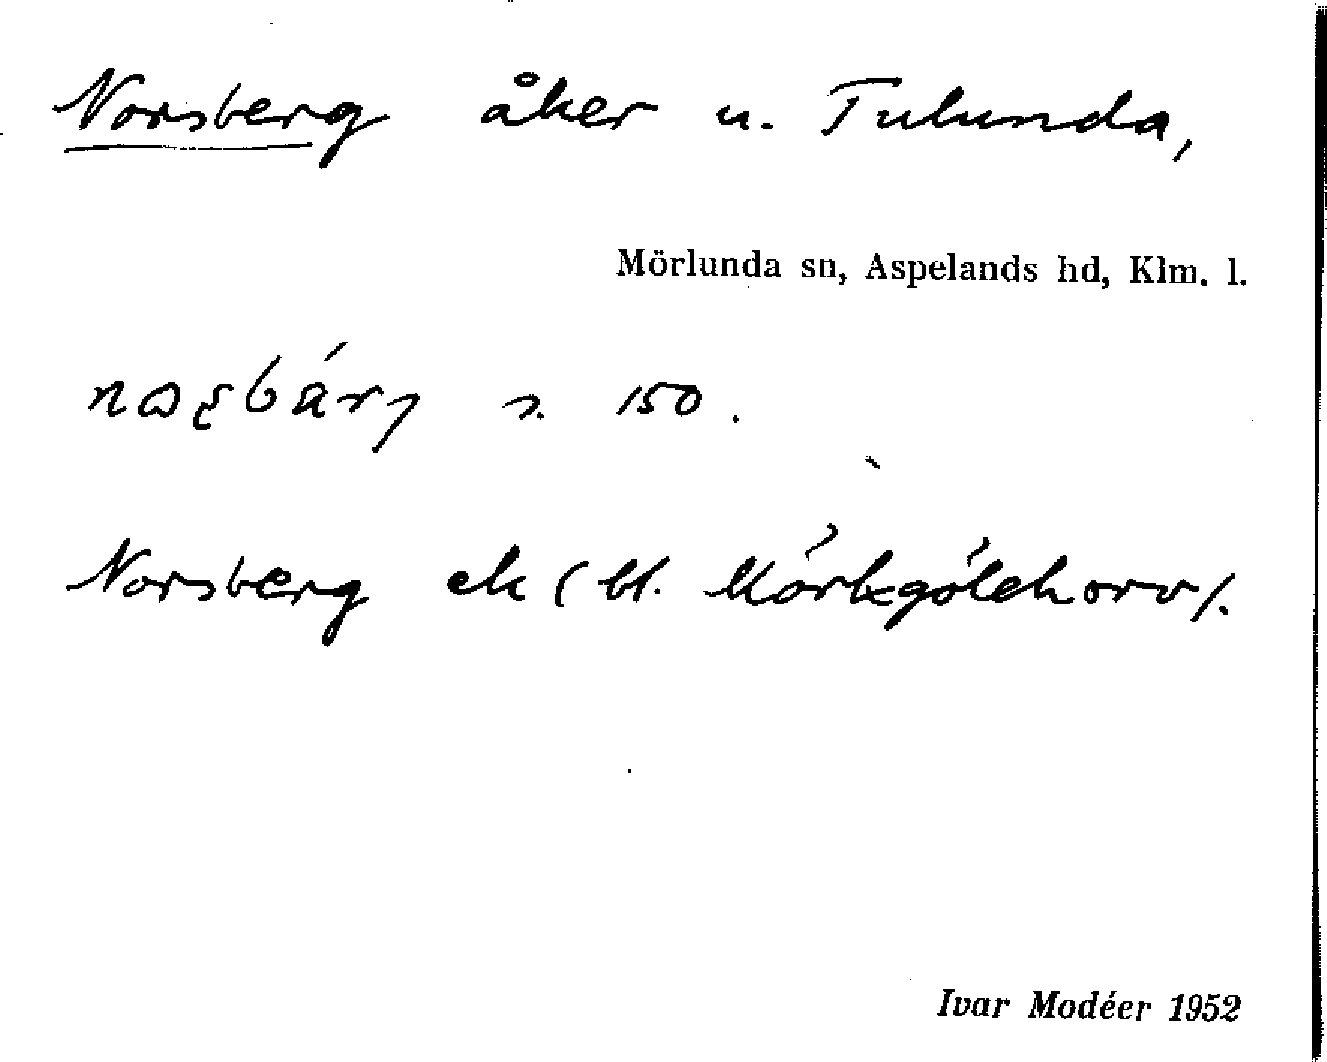 Norsberg åker u. Tulunda,
Mörlunda sn, Aspelands hd, Klm. l.
s. 150.
Norsberg ek (bl.
Ivar Modéer 1952